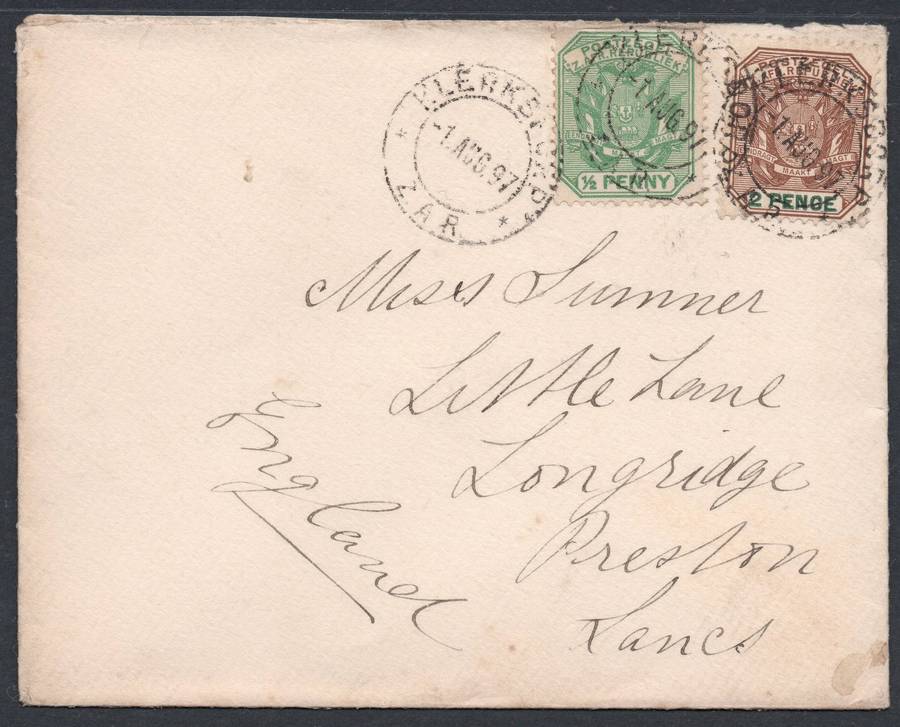 KLERKSDORP
-1.AUG.97
Z.A.R.
POSTZEGEL
Z. AFR. REPUBLIEK
EENDRAGT MAAKT MAGT
½ PENNY
POSTZEGEL
Z. AFR. REPUBLIEK
EENDRAGT MAAKT MAGT
2 PENCE
KLERKSDORP
-1 AUG 97
KLERKSDORP
-1 AUG 97
Miss Sumner
Little Lane
Longridge
Preston
Lancs
England